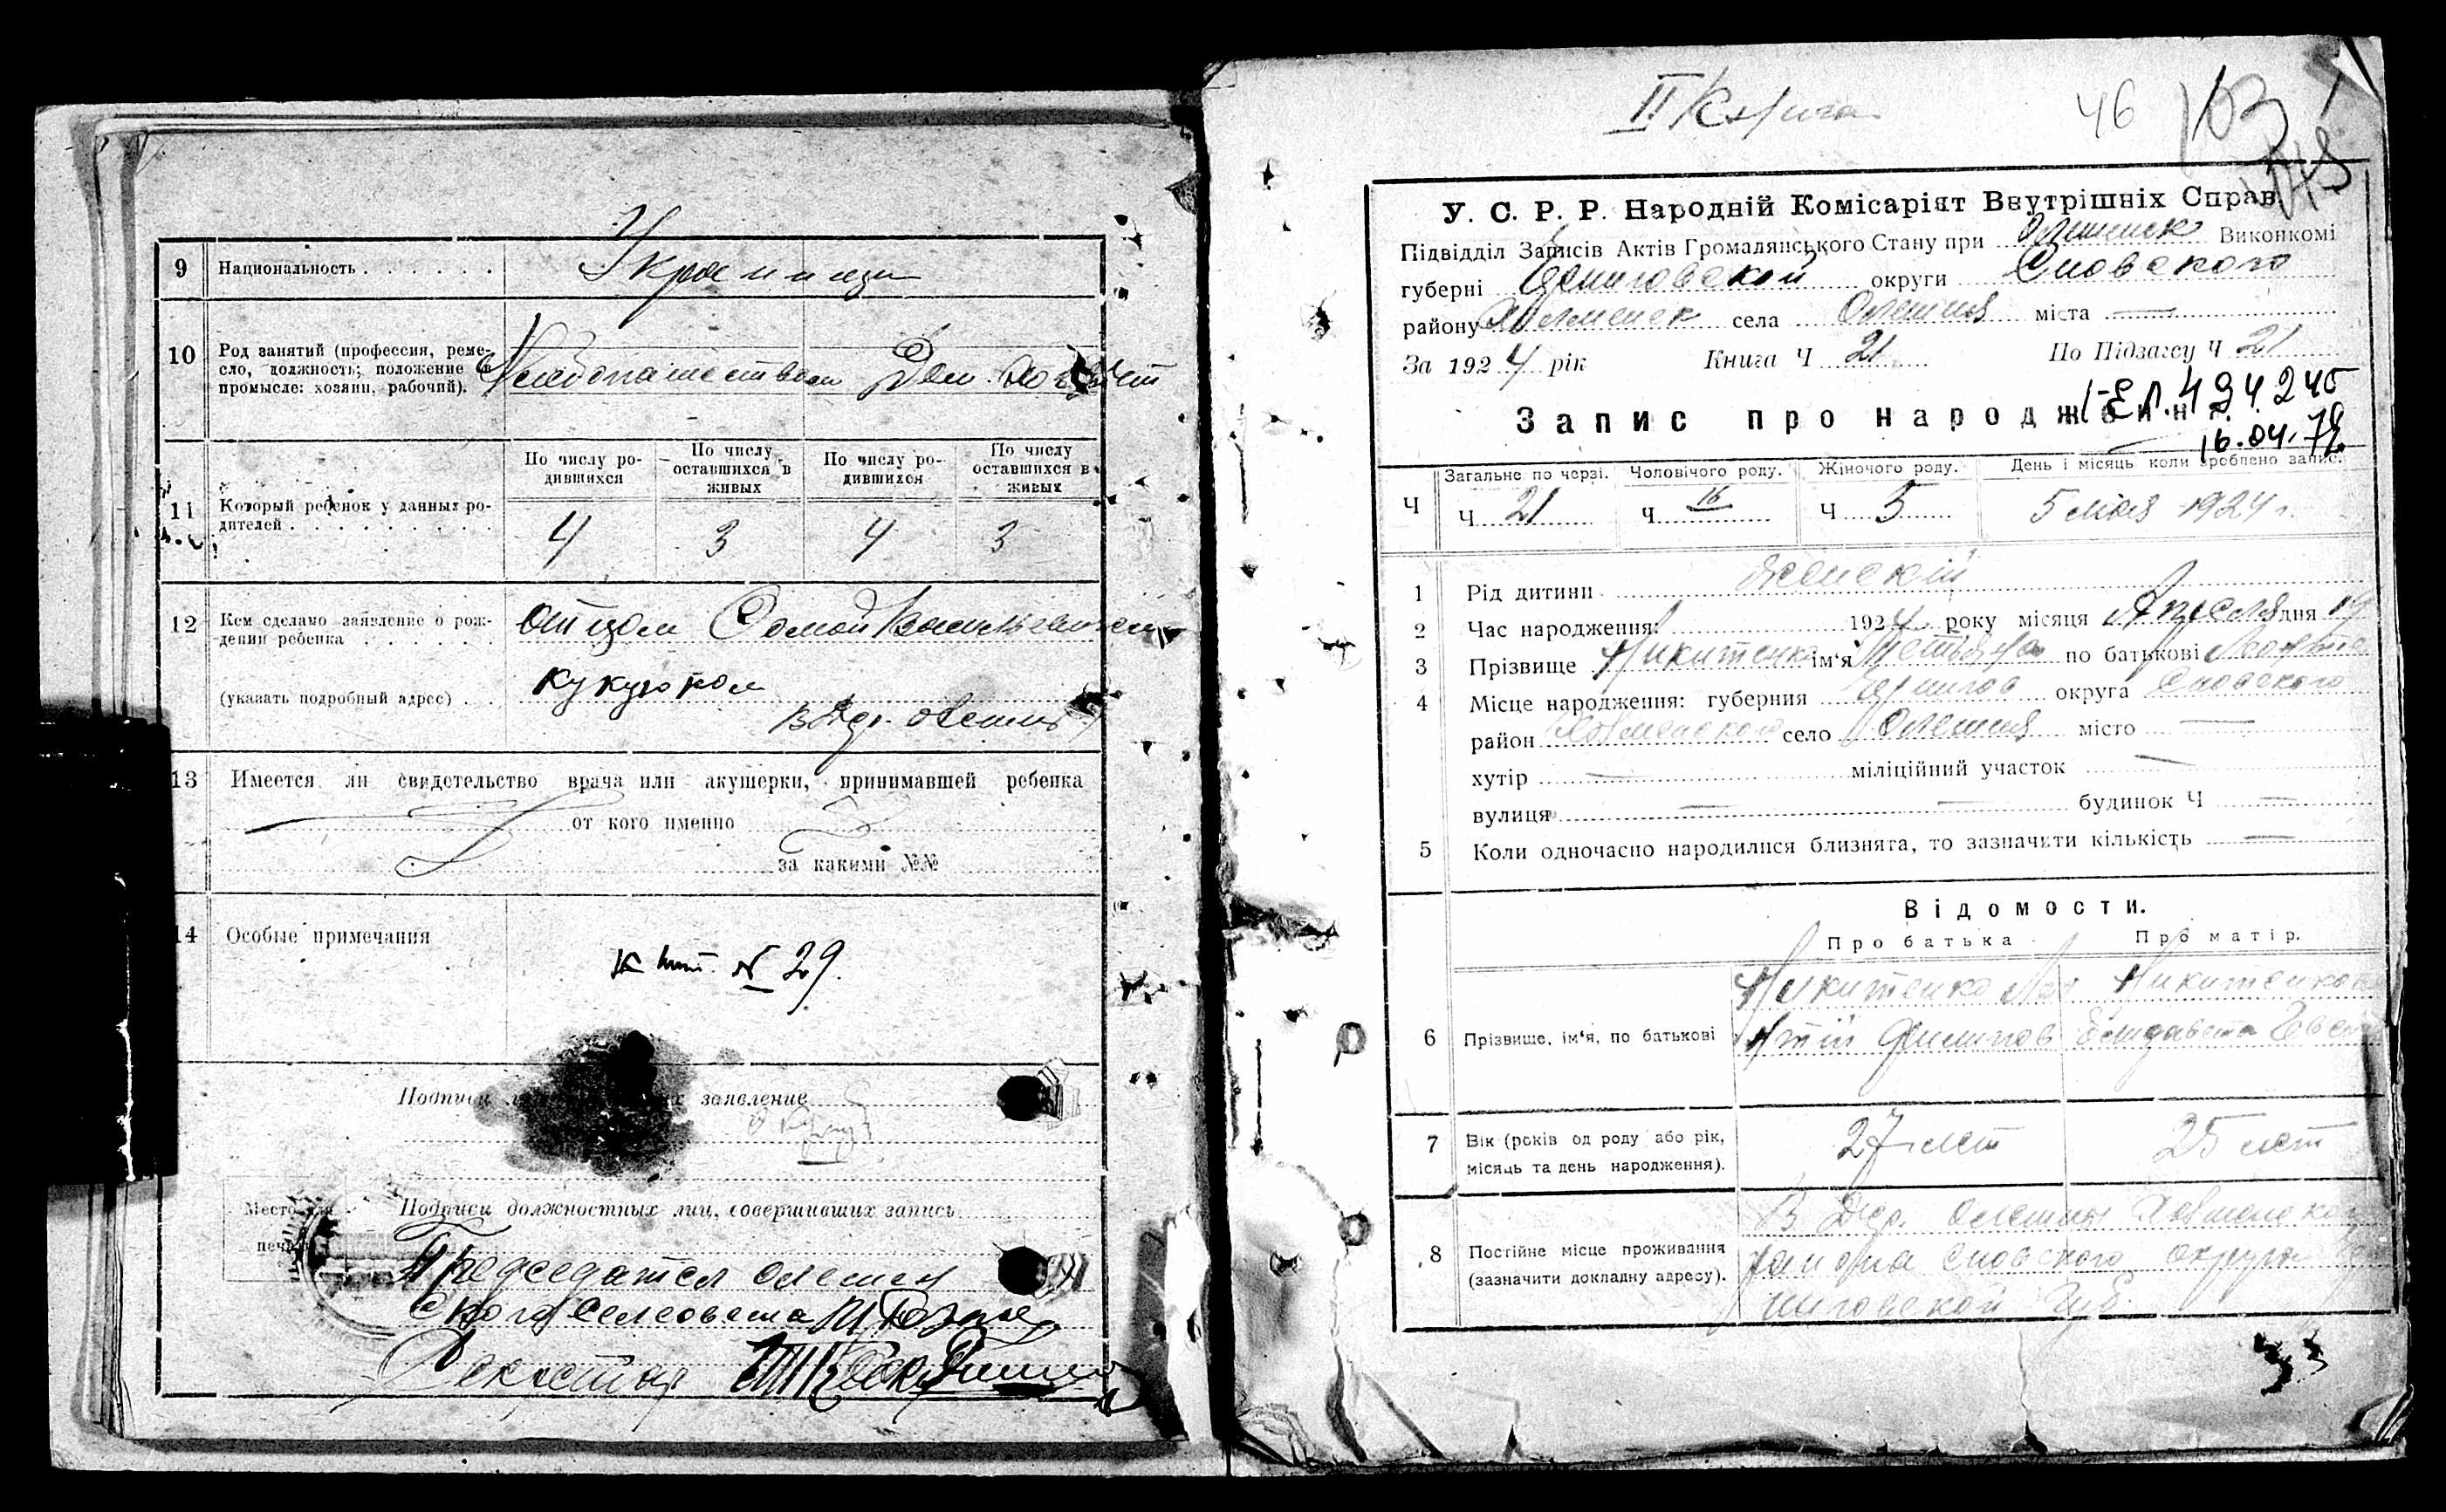 9 Национальность . . . . . . Украинцы
10 Род занятий (профессия, реме-
сло, должность; положение в
промысле: хозяин, рабочий).
Хлебопашеством Дом. хоз.
11 Который ребенок у данных ро-
дителей . . . . . . . . .
По числу ро-
дившихся
По числу
оставшихся в
живых
По числу ро-
дившихся
По числу
оставшихся в
живых
4 3 4 3
12 Кем сделано заявление о рож-
дении ребенка . . . . . . .
(указать подробный адрес) . .
отцом
в дер. Олешня
13 Имеется ли свидетельство врача или акушерки, принимавшей ребенка
от кого именно
за какими №№
14 Особые примечания
№ 29.
Подписи заявление
Место для
печати
Подписи должностных лиц, совершивших запись
Председател Олешен
ского Сельсовета
Секретарь
II Книга
46 103
У. С. Р. Р. Народній Комісаріят Внутрішніх Справ.
Підвідділ Записів Актів Громадянського Стану при Олешнск Виконкомі
губерні Черниговской округи Сновского
району Холменск села Олешня міста —
За 1924 рік Книга Ч 21 По Підзагсу Ч 21
Запис про народження.
I-ЕЛ. 494245
16.04.79.
Ч
Загальне по черзі. Чоловічого роду. Жіночого роду. День і місяць коли зроблено запис.
Ч 21 Ч 16 Ч 5 5 мая 1924 г.
1 Рід дитини Женский
2 Час народження: 1924 року місяця Апреля дня 19
3 Прізвище Никитенко ім'я Татьяна по батькові
4 Місце народження: губерния Чернигов округа Сновского
район Холменского село Олешня місто —
хутір — міліційний участок —
вулиця — — будинок Ч —
5 Коли одночасно народилися близнята, то зазначити кількість —
Відомости.
Про батька Про матір.
6 Прізвище, ім'я, по батькові
Никитенко Никитенкова
Филипов Елизавета
7 Вік (років од роду або рік,
місяць та день народження).
27 лет 25 лет
8 Постійне місце проживання
(зазначити докладну адресу).
В дер. Олешни Холменского
района Сновского округа Чер
ниговской Губ.
33